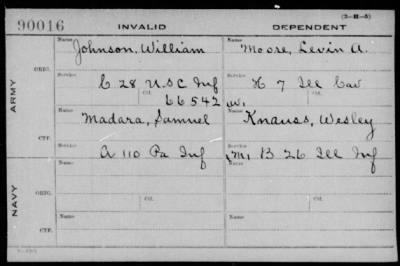 (3-H-5)
90016 INVALID DEPENDENT
Name Johnson, William Name Moore, Levin A.
ORIG.
Service C 28 U.S.C Inf Service K 7 Ill Cav
Ctf. 66542 Ctf. W.
ARMY
Name Madara, Samuel Name Knauss, Wesley
CTF.
Service A 110 Pa Inf Service M. B 26 Ill Inf
Name Name
ORIG.
Ctf. Ctf.
NAVY
Name Name
CTF.